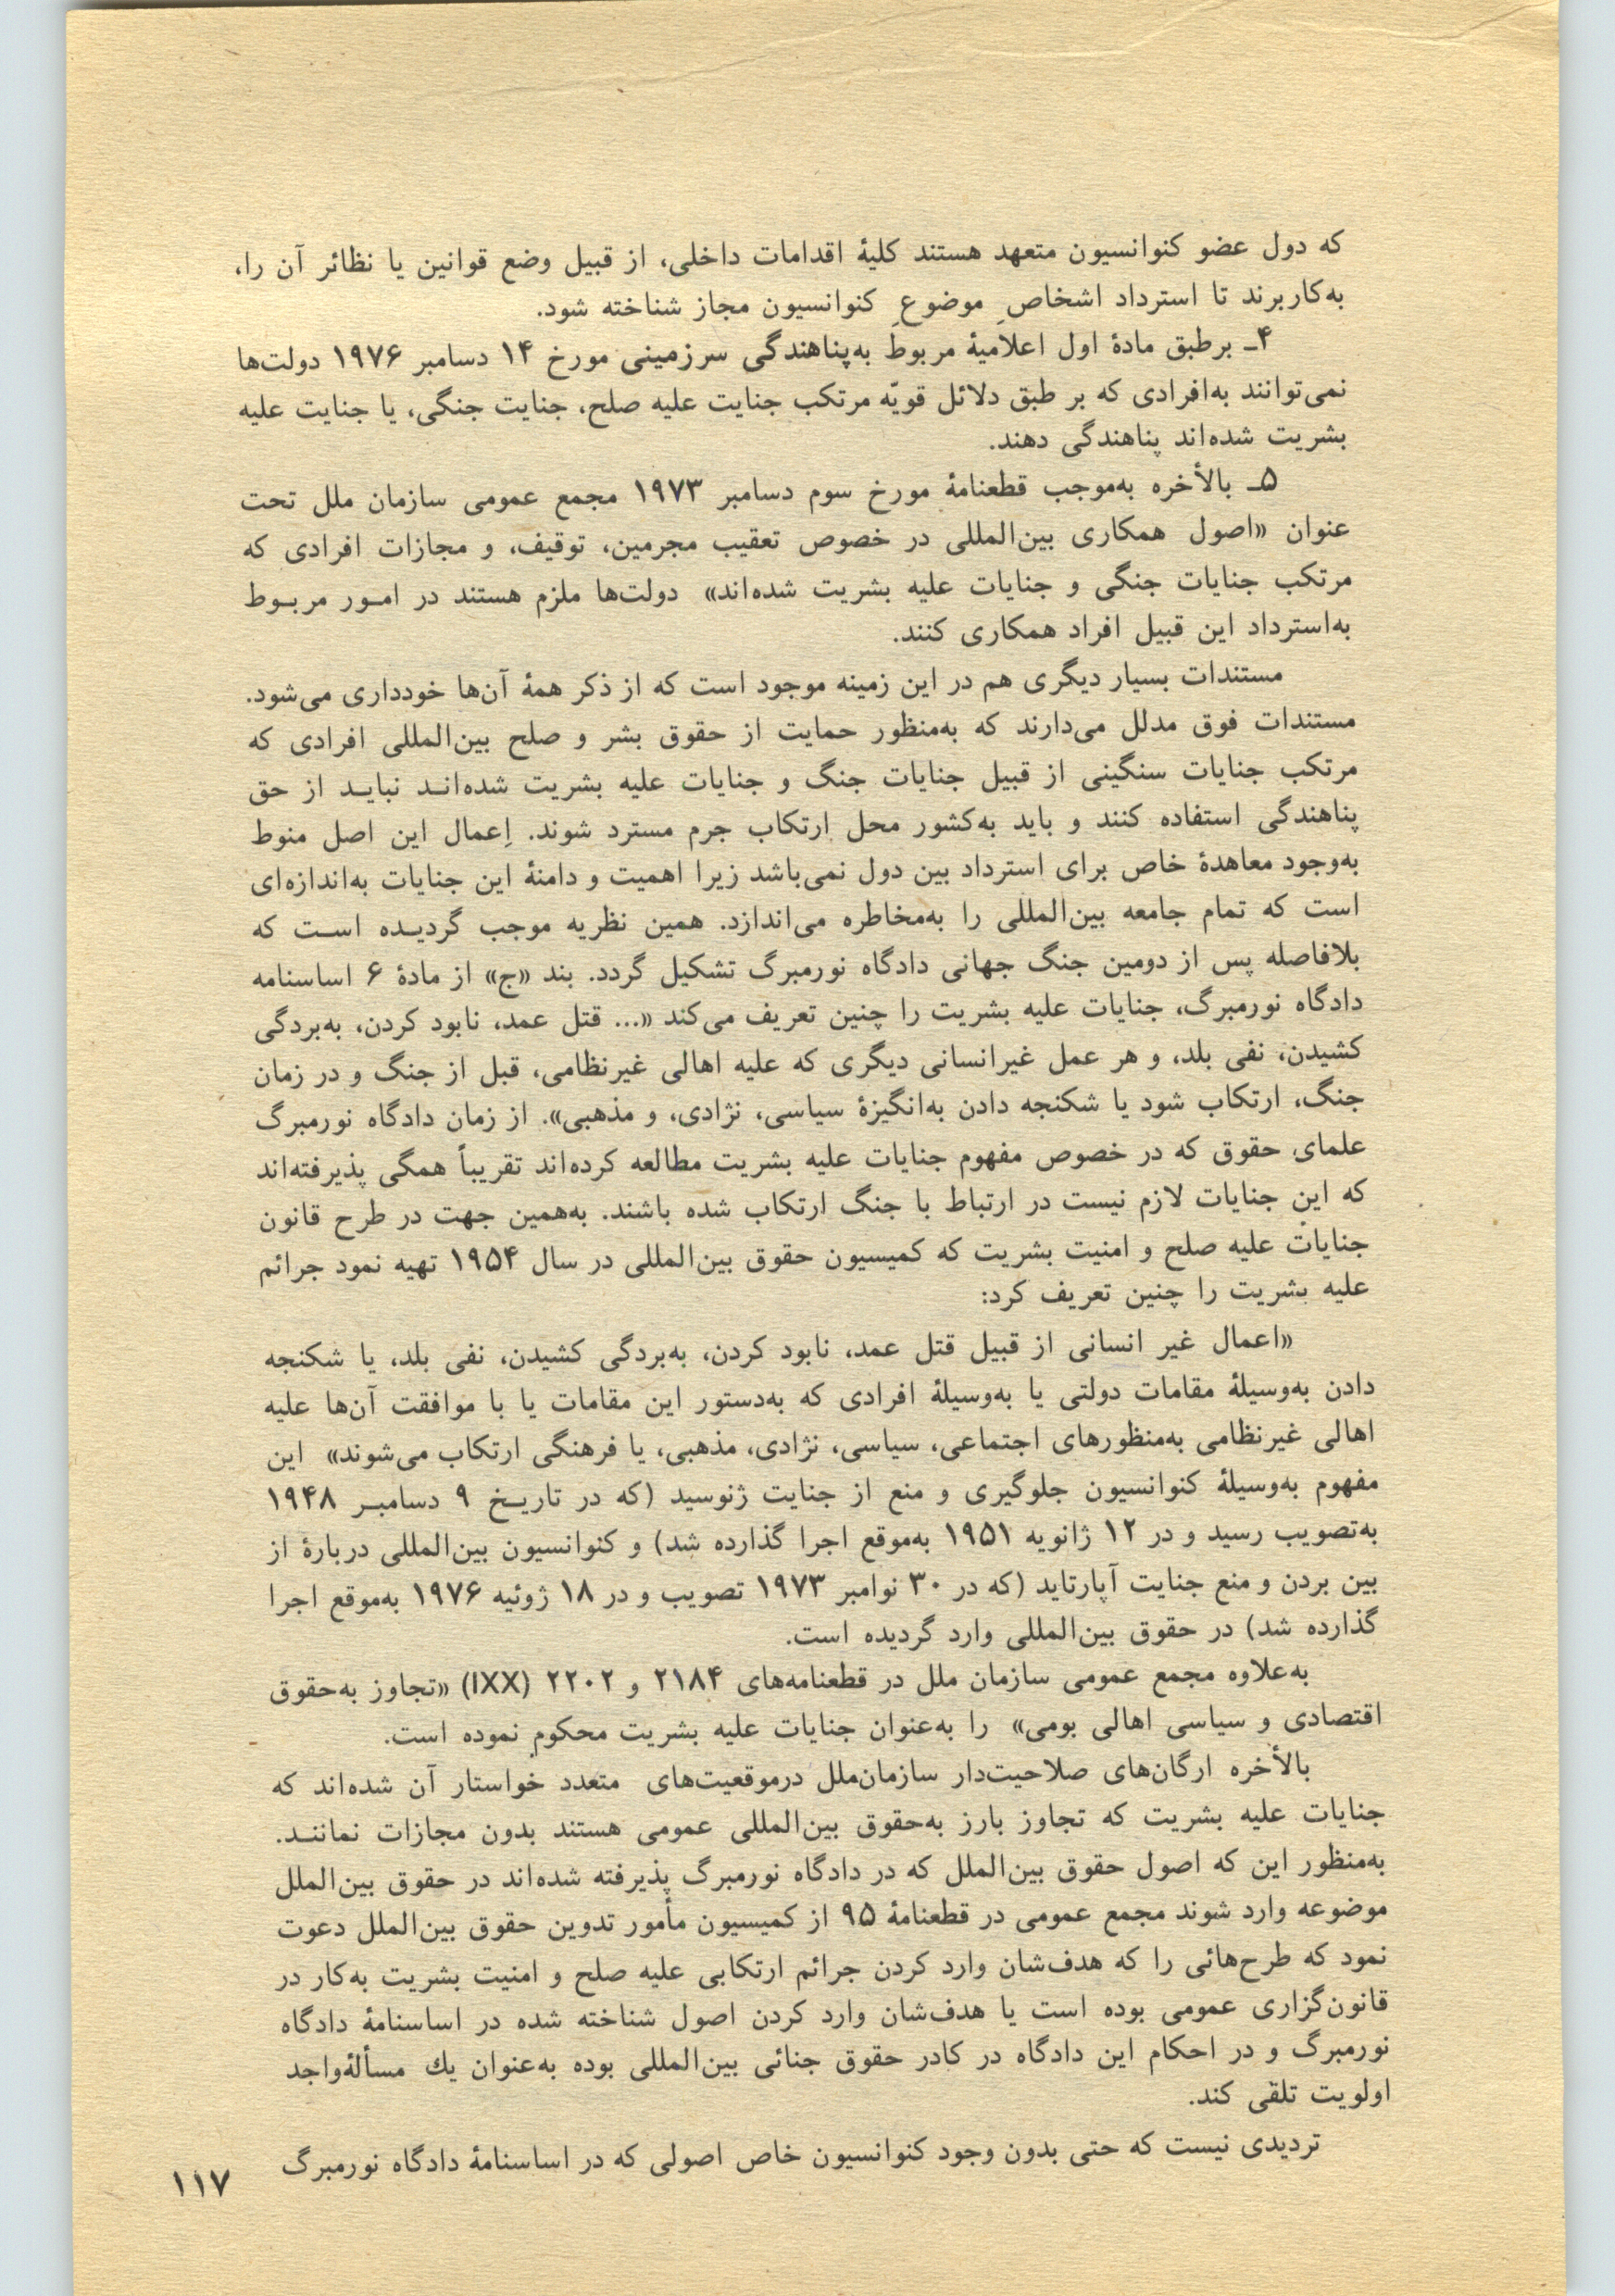 که دول عضو کنوانسیون متعهد هستند کلیهٔ اقدامات داخلی، از قبیل وضع قوانین یا نظائر آن را،
به‌کاربرند تا استرداد اشخاصِ موضوعِ کنوانسیون مجاز شناخته شود.
۴ـ برطبق مادهٔ اول اعلامیهٔ مربوط به‌پناهندگی سرزمینی مورخ ۱۴ دسامبر ۱۹۷۶ دولت‌ها
نمی‌توانند به‌افرادی که بر طبق دلائل قویّه مرتکب جنایت علیه صلح، جنایت جنگی، یا جنایت علیه
بشریت شده‌اند پناهندگی دهند.
۵ـ بالأخره به‌موجب قطعنامهٔ مورخ سوم دسامبر ۱۹۷۳ مجمع عمومی سازمان ملل تحت
عنوان «اصول همکاری بین‌المللی در خصوص تعقیب مجرمین، توقیف، و مجازات افرادی که
مرتکب جنایات جنگی و جنایات علیه بشریت شده‌اند» دولت‌ها ملزم هستند در امـور مربـوط
به‌استرداد این قبیل افراد همکاری کنند.
مستندات بسیار دیگری هم در این زمینه موجود است که از ذکر همهٔ آن‌ها خودداری می‌شود.
مستندات فوق مدلل می‌دارند که به‌منظور حمایت از حقوق بشر و صلح بین‌المللی افرادی که
مرتکب جنایات سنگینی از قبیل جنایات جنگ و جنایات علیه بشریت شده‌انـد نبایـد از حق
پناهندگی استفاده کنند و باید به‌کشور محل ارتکاب جرم مسترد شوند. اِعمال این اصل منوط
به‌وجود معاهدهٔ خاص برای استرداد بین دول نمی‌باشد زیرا اهمیت و دامنهٔ این جنایات به‌اندازه‌ای
است که تمام جامعه بین‌المللی را به‌مخاطره می‌اندازد. همین نظریه موجب گردیـده اسـت که
بلافاصله پس از دومین جنگ جهانی دادگاه نورمبرگ تشکیل گردد. بند «ج» از مادهٔ ۶ اساسنامه
دادگاه نورمبرگ، جنایات علیه بشریت را چنین تعریف می‌کند «... قتل عمد، نابود کردن، به‌بردگی
کشیدن، نفی بلد، و هر عمل غیرانسانی دیگری که علیه اهالی غیرنظامی، قبل از جنگ و در زمان
جنگ، ارتکاب شود یا شکنجه دادن به‌انگیزهٔ سیاسی، نژادی، و مذهبی». از زمان دادگاه نورمبرگ
علمای حقوق که در خصوص مفهوم جنایات علیه بشریت مطالعه کرده‌اند تقریباً همگی پذیرفته‌اند
که این جنایات لازم نیست در ارتباط با جنگ ارتکاب شده باشند. به‌همین جهت در طرح قانون
جنایات علیه صلح و امنیت بشریت که کمیسیون حقوق بین‌المللی در سال ۱۹۵۴ تهیه نمود جرائم
علیه بشریت را چنین تعریف کرد:
«اعمال غیر انسانی از قبیل قتل عمد، نابود کردن، به‌بردگی کشیدن، نفی بلد، یا شکنجه
دادن به‌وسیلهٔ مقامات دولتی یا به‌وسیلهٔ افرادی که به‌دستور این مقامات یا با موافقت آن‌ها علیه
اهالی غیرنظامی به‌منظورهای اجتماعی، سیاسی، نژادی، مذهبی، یا فرهنگی ارتکاب می‌شوند» این
مفهوم به‌وسیلهٔ کنوانسیون جلوگیری و منع از جنایت ژنوسید (که در تاریـخ ۹ دسامبـر ۱۹۴۸
به‌تصویب رسید و در ۱۲ ژانویه ۱۹۵۱ به‌موقع اجرا گذارده شد) و کنوانسیون بین‌المللی دربارهٔ از
بین بردن و منع جنایت آپارتاید (که در ۳۰ نوامبر ۱۹۷۳ تصویب و در ۱۸ ژوئیه ۱۹۷۶ به‌موقع اجرا
گذارده شد) در حقوق بین‌المللی وارد گردیده است.
به‌علاوه مجمع عمومی سازمان ملل در قطعنامه‌های ۲۱۸۴ و ۲۲۰۲ (IXX) «تجاوز به‌حقوق
اقتصادی و سیاسی اهالی بومی» را به‌عنوان جنایات علیه بشریت محکوم نموده است.
بالأخره ارگان‌های صلاحیت‌دار سازمان‌ملل درموقعیت‌های متعدد خواستار آن شده‌اند که
جنایات علیه بشریت که تجاوز بارز به‌حقوق بین‌المللی عمومی هستند بدون مجازات نماننـد.
به‌منظور این که اصول حقوق بین‌الملل که در دادگاه نورمبرگ پذیرفته شده‌اند در حقوق بین‌الملل
موضوعه وارد شوند مجمع عمومی در قطعنامهٔ ۹۵ از کمیسیون مأمور تدوین حقوق بین‌الملل دعوت
نمود که طرح‌هائی را که هدف‌شان وارد کردن جرائم ارتکابی علیه صلح و امنیت بشریت به‌کار در
قانون‌گزاری عمومی بوده است یا هدف‌شان وارد کردن اصول شناخته شده در اساسنامهٔ دادگاه
نورمبرگ و در احکام این دادگاه در کادر حقوق جنائی بین‌المللی بوده به‌عنوان یك مسألهٔ‌واجد
اولویت تلقی کند.
تردیدی نیست که حتی بدون وجود کنوانسیون خاص اصولی که در اساسنامهٔ دادگاه نورمبرگ
۱۱۷